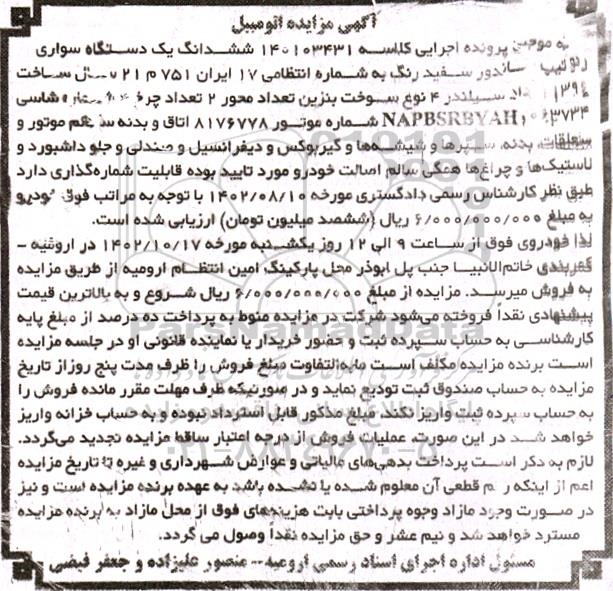 آگهی مزایده اتومبیل
به موجب پرونده اجرایی کلاسه ۱۴۰۱۰۳۴۳۱ ششدانگ یک دستگاه سواری
ساندور سفید رنگ به شماره انتظامی ۱۷ ایران ۷۵۱ م ۲۱ سال ساخت
سیلندر ۴ نوع سوخت بنزین تعداد محور ۲ تعداد چرخ شماره شاسی
NAPBSRBYAH شماره موتور ۸۱۷۶۷۷۸ اتاق و بدنه سالم موتور و
متعلقات، بدنه، سپرها و شیشه‌ها و گیربوکس و دیفرانسیل و صندلی و جلو داشبورد و
لاستیک‌ها و چراغ‌ها همگی سالم اصالت خودرو مورد تایید بوده قابلیت شماره‌گذاری دارد
طبق نظر کارشناس رسمی دادگستری مورخه ۱۴۰۲/۰۸/۱۰ با توجه به مراتب فوق خودرو
به مبلغ ۶/۰۰۰/۰۰۰/۰۰۰ ریال (ششصد میلیون تومان) ارزیابی شده است.
لذا خودروی فوق از ساعت ۹ الی ۱۲ روز یکشنبه مورخه ۱۴۰۲/۱۰/۱۷ در ارومیه -
کمربندی خاتم‌الانبیا جنب پل ابوذر محل پارکینگ امین انتظام ارومیه از طریق مزایده
به فروش میرسد. مزایده از مبلغ ۶/۰۰۰/۰۰۰/۰۰۰ ریال شروع و به بالاترین قیمت
پیشنهادی نقداً فروخته می‌شود شرکت در مزایده منوط به پرداخت ده درصد از مبلغ پایه
کارشناسی به حساب سپرده ثبت و حضور خریدار یا نماینده قانونی او در جلسه مزایده
است برنده مزایده مکلف است مابه‌التفاوت مبلغ فروش را ظرف مدت پنج روز از تاریخ
مزایده به حساب صندوق ثبت تودیع نماید و در صورتیکه ظرف مهلت مقرر مانده فروش را
به حساب سپرده ثبت واریز نکند مبلغ مذکور قابل استرداد نبوده و به حساب خزانه واریز
خواهد شد در این صورت، عملیات فروش از درجه اعتبار ساقط مزایده تجدید می‌گردد.
لازم به ذکر است پرداخت بدهی‌های مالیاتی و عوارض شهرداری و غیره تا تاریخ مزایده
اعم از اینکه رقم قطعی آن معلوم شده یا نشده باشد به عهده برنده مزایده است و نیز
در صورت وجود مازاد وجوه پرداختی بابت هزینه‌های فوق از محل مازاد به برنده مزایده
مسترد خواهد شد و نیم عشر و حق مزایده نقداً وصول می گردد.
مسئول اداره اجرای اسناد رسمی ارومیه -- منصور علیزاده و جعفر فیضی
ParsNamadData
۰۲۱-۸۸۳۴۹۶۷۰-۵